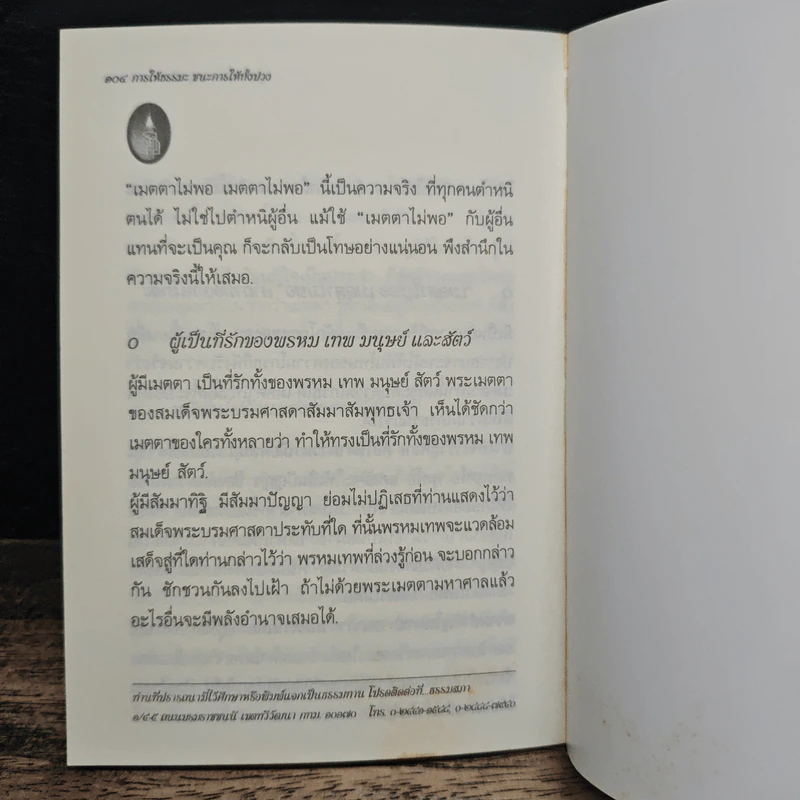 ๑๐๔ การให้ธรรมะ ชนะการให้ทั้งปวง
“เมตตาไม่พอ เมตตาไม่พอ” นี้เป็นความจริง ที่ทุกคนตำหนิ
ตนได้ ไม่ใช่ไปตำหนิผู้อื่น แม้ใช้ “เมตตาไม่พอ” กับผู้อื่น
แทนที่จะเป็นคุณ ก็จะกลับเป็นโทษอย่างแน่นอน พึงสำนึกใน
ความจริงนี้ให้เสมอ.
๐ ผู้เป็นที่รักของพรหม เทพ มนุษย์ และสัตว์
ผู้มีเมตตา เป็นที่รักทั้งของพรหม เทพ มนุษย์ สัตว์ พระเมตตา
ของสมเด็จพระบรมศาสดาสัมมาสัมพุทธเจ้า เห็นได้ชัดกว่า
เมตตาของใครทั้งหลายว่า ทำให้ทรงเป็นที่รักทั้งของพรหม เทพ
มนุษย์ สัตว์.
ผู้มีสัมมาทิฐิ มีสัมมาปัญญา ย่อมไม่ปฏิเสธที่ท่านแสดงไว้ว่า
สมเด็จพระบรมศาสดาประทับที่ใด ที่นั้นพรหมเทพจะแวดล้อม
เสด็จสู่ที่ใดท่านกล่าวไว้ว่า พรหมเทพที่ล่วงรู้ก่อน จะบอกกล่าว
กัน ชักชวนกันลงไปเฝ้า ถ้าไม่ด้วยพระเมตตามหาศาลแล้ว
อะไรอื่นจะมีพลังอำนาจเสมอได้.
ท่านที่ปรารถนามีไว้ศึกษาหรือพิมพ์แจกเป็นธรรมทาน โปรดติดต่อที่...ธรรมสภา
๑/๔-๕ ถนนบรมราชชนนี เขตทวีวัฒนา กทม. ๑๐๑๗๐ โทร. ๐-๒๔๔๑-๑๕๘๘, ๐-๒๘๘๘-๗๙๔๐